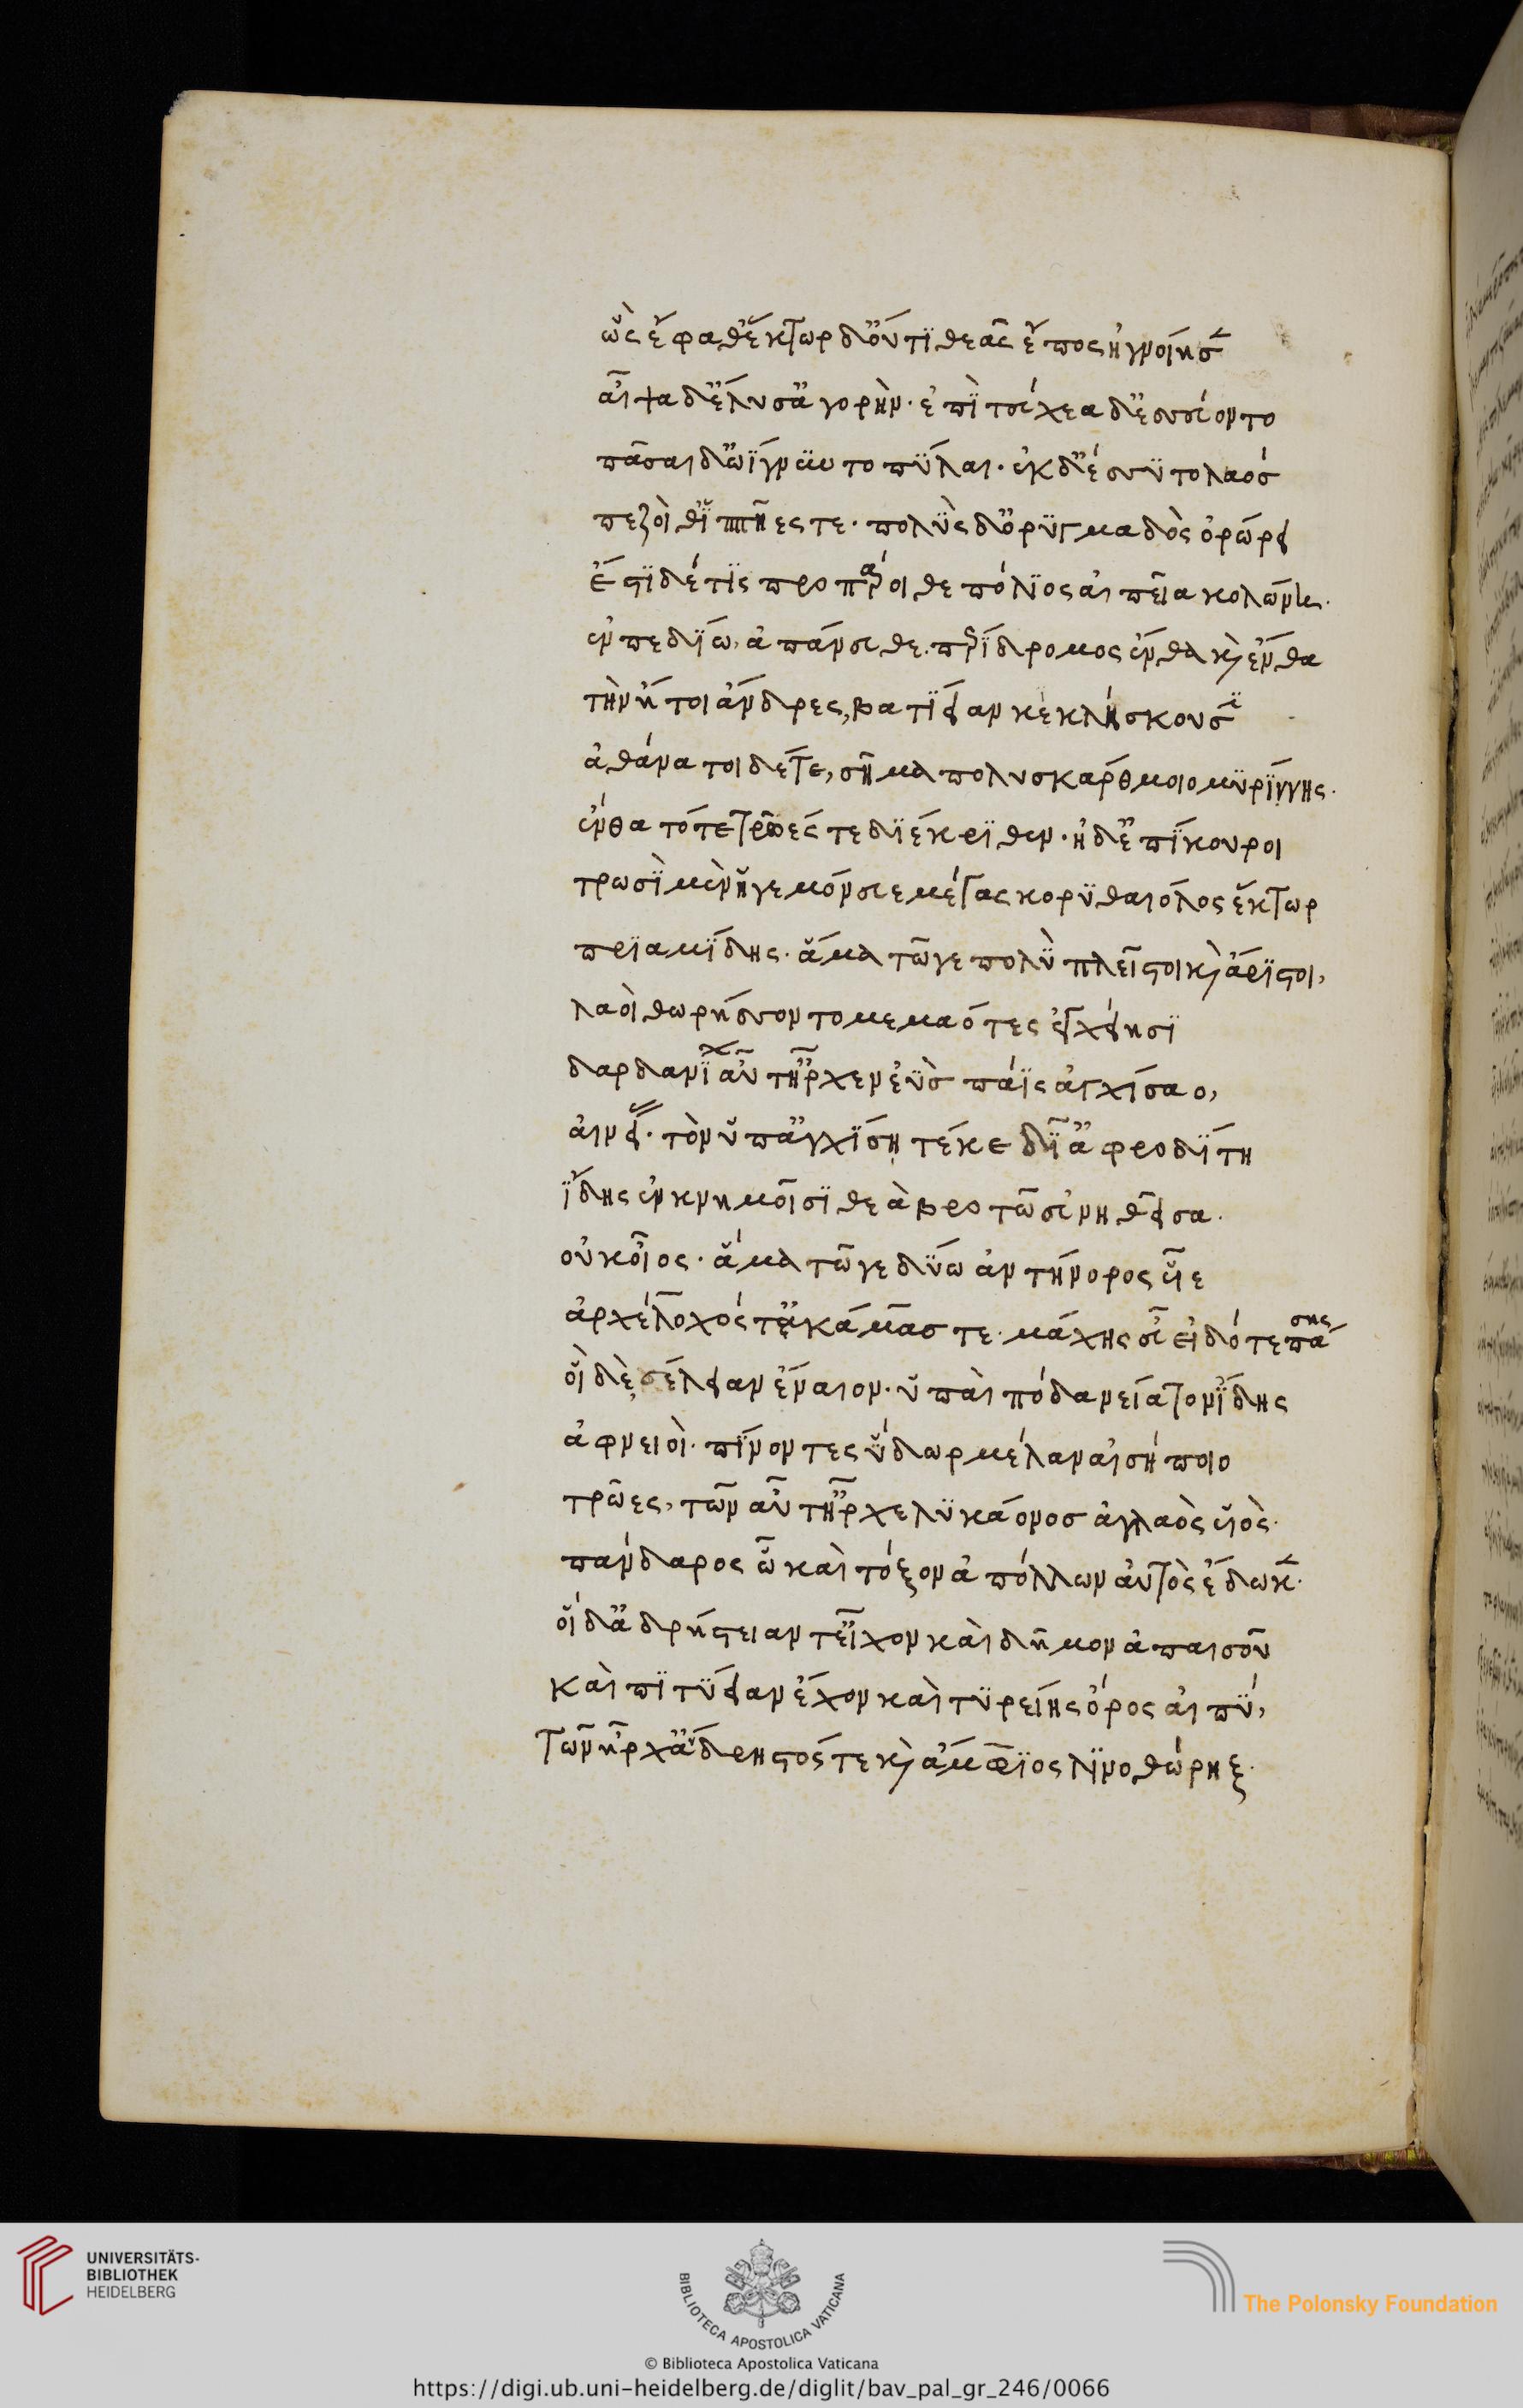 ὣς ἔφαθ' ἕκτωρ δ' οὔ τϊ θεᾶς ἔπος ἠγνοίησ̅
αἶψα δ' ἔλυσ' ἀγορὴν· ἐπὶ τεύχεα δ' ἐσσεύοντο
πᾶσαι δ' ὠΐγνϋντο πύλαι· ἐκ δ' ἔσσϋτο λαόσ
πεζοὶ θ' ἱππῆες τε· πολὺς δ' ὀρϋγμαδὸς ὀρώρει
ἔστϊ δέ τϊς προπάροιθε πόλϊος αἰπεῖα κολώνη·
ἐν πεδΐω, ἀπάνευθε· περΐδρομος ἔνθα κὶ ἔνθα
τὴν ἤτοι ἄνδρες, βατΐειαν κικλήσκουσϊ
ἀθάνατοι δέτε, σῆμα πολυσκάρθμοιο μϋρΐννης·
ἔνθα τότε τρῶές τε δϊέκρϊθεν· ἠδ' ἐπΐκουροι
τρωσϊ μὲν ἡγεμόνευε μέγας κορϋθαιόλος ἕκτωρ
πρϊαμΐδης· ἅμα τῶγε πολὺ πλεῖστοι κὶ ἄρϊστοι,
λαοὶ θωρήσσοντο μεμαότες ἐγχείησϊ
δαρδανΐων αὖτ' ἦρχεν ἐΰσ πάϊς ἀγχίσαο,
αἰνείας· τὸν ὑπ' ἀγχΐση τέκε δῖ' ἀφροδΐτη
ἴδης ἐν κνημοῖσϊ θεὰ βροτῶ εὐνηθεῖσα·
οὐκ οἶος· ἅμα τῶγε δύω ἀντήνορος υἷε
ἀρχέλοχός τ' ἀκάμας τε· μάχης εὖ εἰδότε πάσης
οἳ δὲ ζέλειαν ἔναιον· ὑπαὶ πόδα νείατον ἴδης
ἀφνειοὶ· πΐνοντες ὕδωρ μέλαν αἰσήποιο
τρῶες, τῶν αὖτ' ἦρχε λϋκάονοσ ἀγλαὸς υἱὸς·
πάνδαρος ὧ καὶ τόξον ἀπόλλων αὐτὸς ἔδωκ̅·
οἵ δ' ἀδρήστειαν τ' εἶχον καὶ δῆμον ἀπαισοῦ
καὶ πϊτΰειαν ἔχον καὶ τϋρείης ὄρος αἰπΰ,
τῶν ἦρχ' ἄδρηστός τε κὶ ἄμφϊος λϊνοθώρηξ·
UNIVERSITÄTS-
BIBLIOTHEK
HEIDELBERG
BIBLIOTECA APOSTOLICA VATICANA
The Polonsky Foundation
© Biblioteca Apostolica Vaticana
https://digi.ub.uni-heidelberg.de/diglit/bav_pal_gr_246/0066